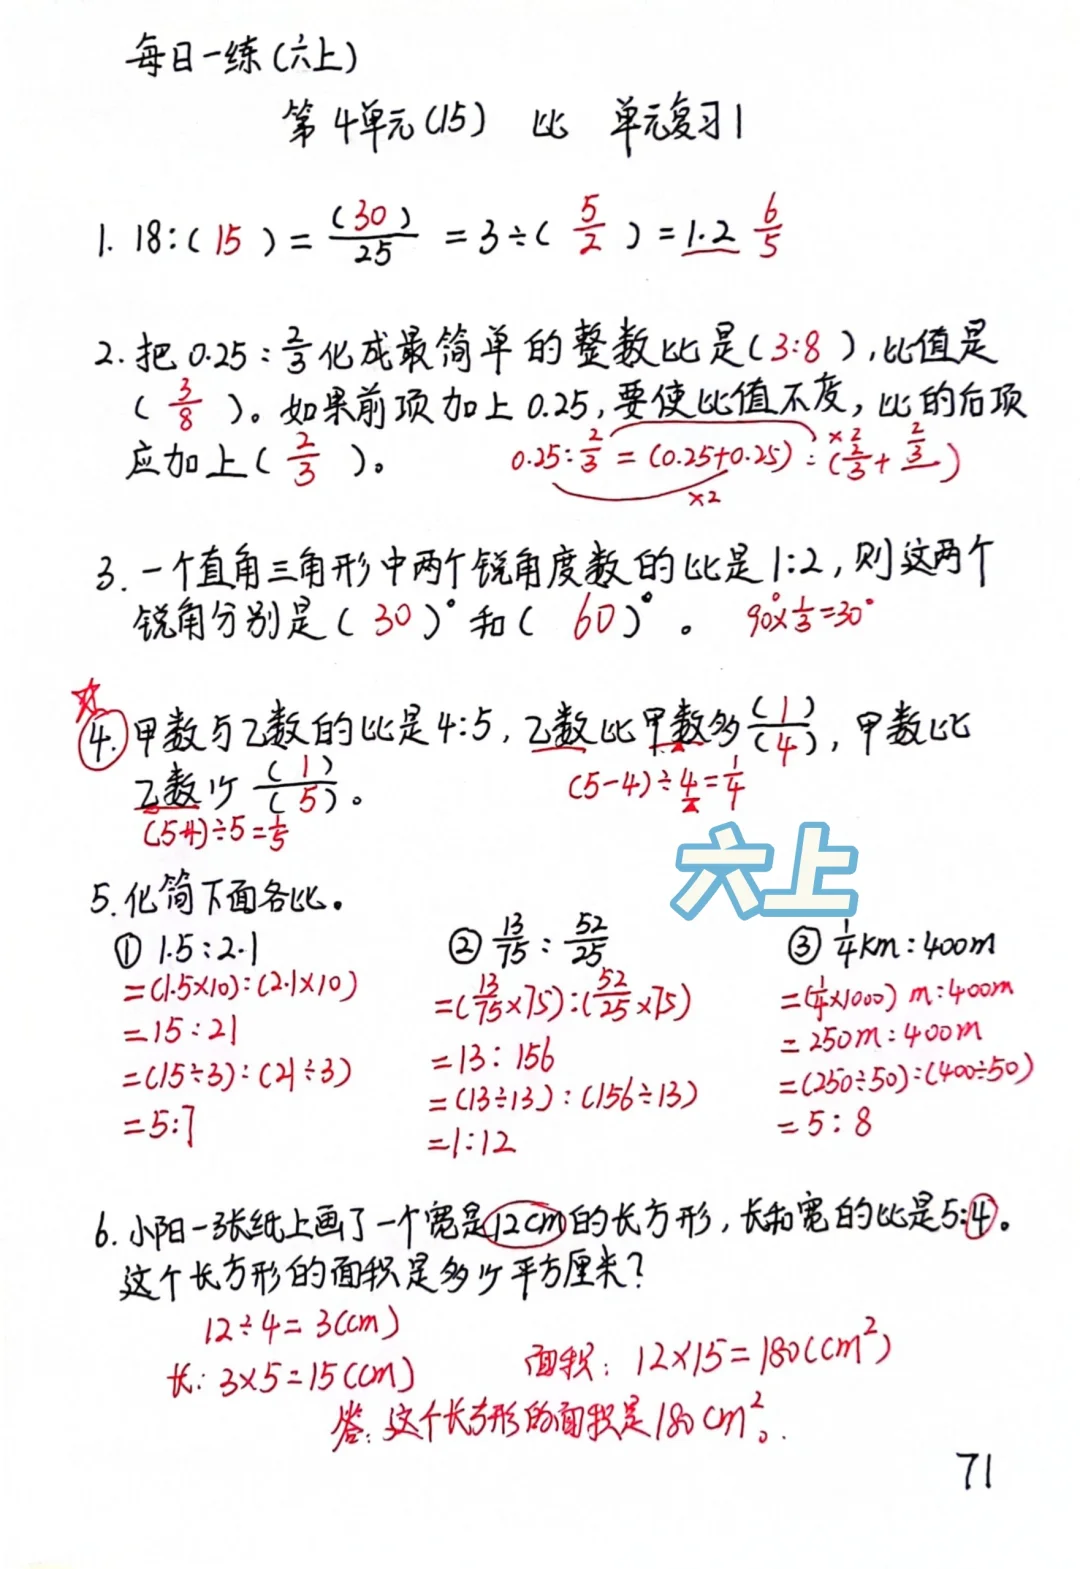 每日一练(六上)
第4单元(15) 比 单元复习1
1. 18:( 15 ) = (30)/25 = 3÷( 5/2 ) = 1.2 6/5
2. 把 0.25 : 2/3 化成最简单的整数比是(3:8),比值是
( 3/8 )。如果前项加上 0.25,要使比值不变,比的后项
应加上( 2/3 )。 0.25:2/3 = (0.25+0.25) : (2/3 + 2/3)
×2
×2
3. 一个直角三角形中两个锐角度数的比是1:2,则这两个
锐角分别是( 30 )°和( 60 )°。 90°×1/3=30°
4. 甲数与乙数的比是4:5,乙数比甲数多(1)/(4),甲数比
乙数少 (1)/(5)。 (5-4)÷4=1/4
(5-4)÷5=1/5
六上
5. 化简下面各比。
① 1.5:2.1
=(1.5×10):(2.1×10)
=15:21
=(15÷3):(21÷3)
=5:7
② 13/75 : 52/25
=(13/75×75):(52/25×75)
=13:156
=(13÷13):(156÷13)
=1:12
③ 1/4km:400m
=(1/4×1000) m:400m
=250m:400m
=(250÷50):(400÷50)
=5:8
6. 小阳一张纸上画了一个宽是12cm的长方形,长和宽的比是5:4。
这个长方形的面积是多少平方厘米?
12÷4=3(cm)
长:3×5=15(cm)
面积:12×15=180(cm²)
答:这个长方形的面积是180cm²。
71